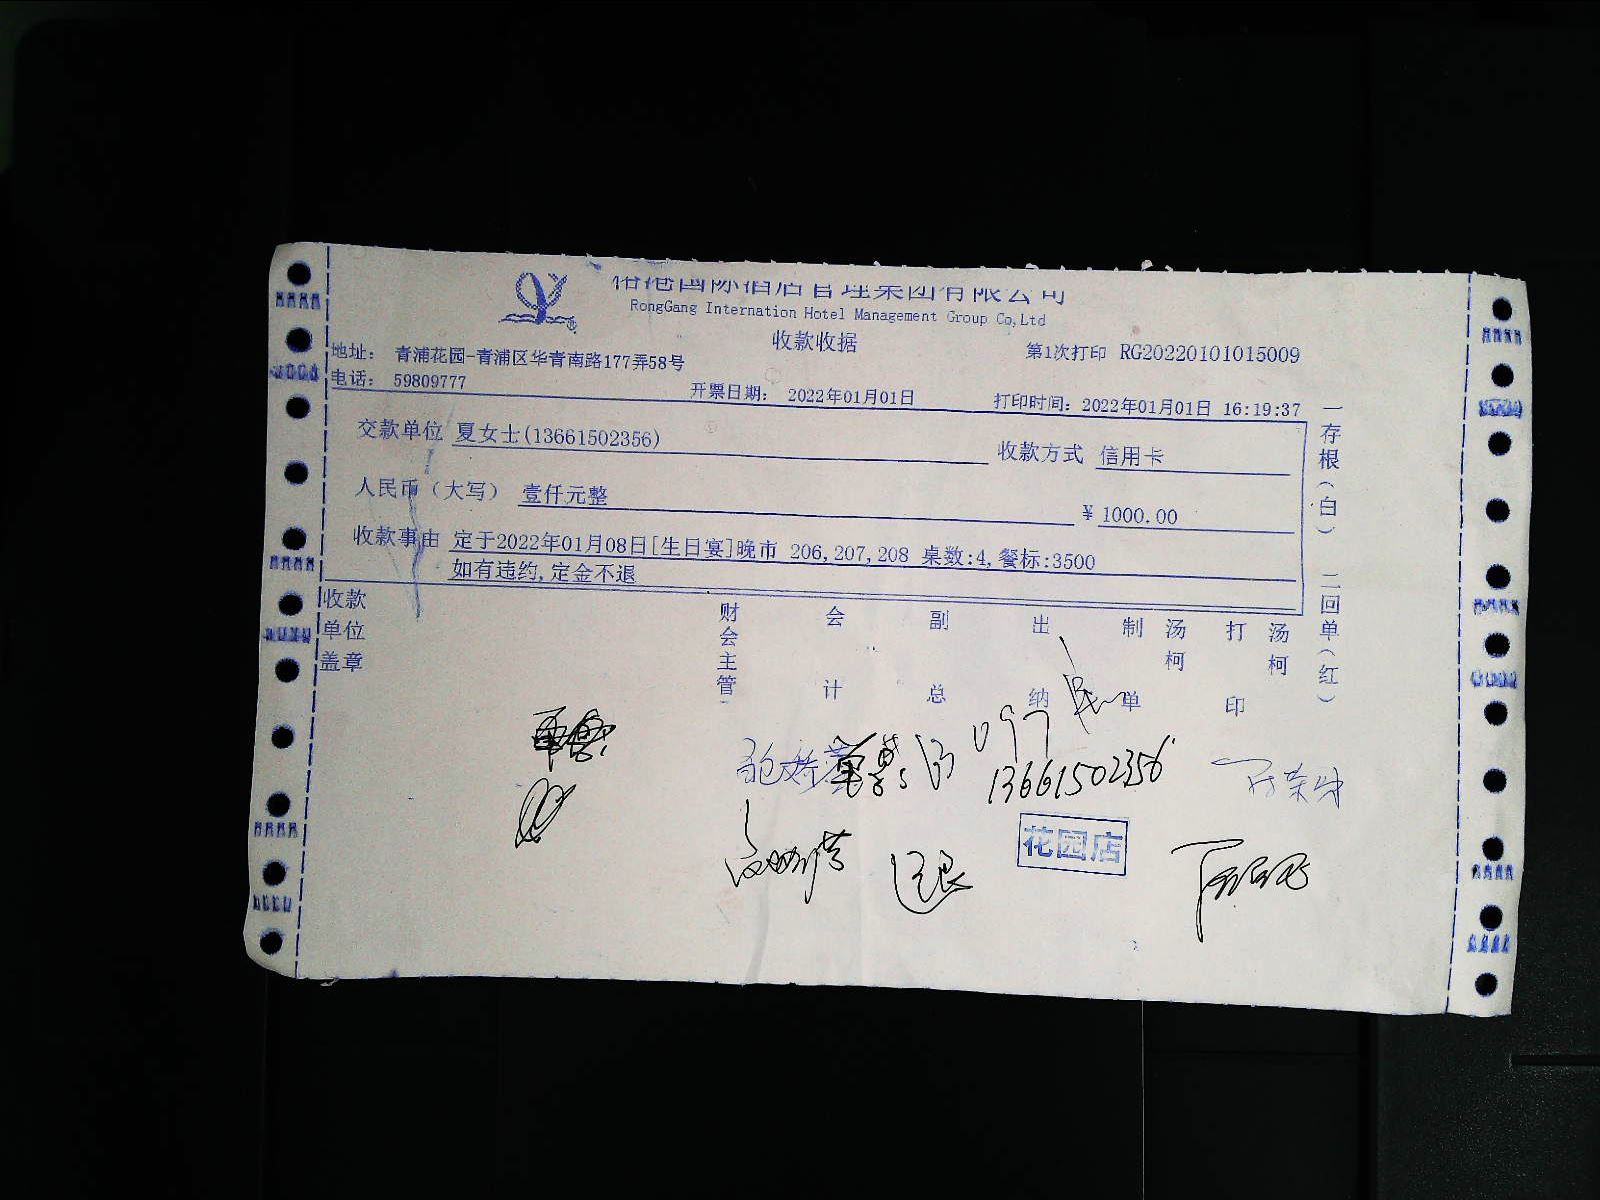 国际酒店管理集团有限公司
RongGang Internation Hotel Management Group Co,Ltd
收款收据
地址： 青浦花园-青浦区华青南路177弄58号
第1次打印 RG20220101015009
电话： 59809777
开票日期： 2022年01月01日
打印时间：2022年01月01日 16:19:37
交款单位 夏女士(13661502356)
收款方式 信用卡
人民币（大写） 壹仟元整
¥ 1000.00
收款事由 定于2022年01月08日[生日宴]晚市 206,207,208 桌数:4,餐标:3500
如有违约,定金不退
一存根（白） 二回单（红）
收款单位盖章
财会主管
会计
副总
出纳
制单
汤柯
打印
汤柯
097
13661502356
花园店
退